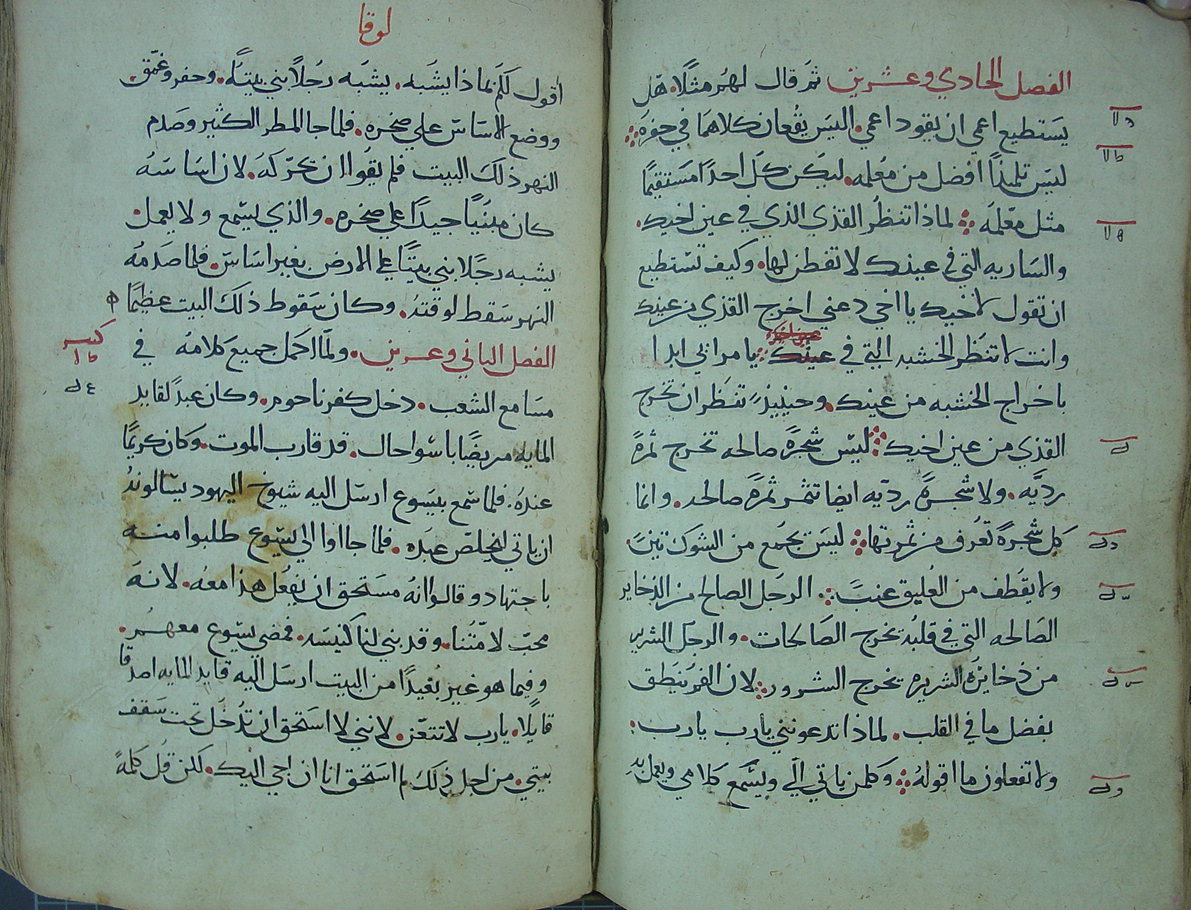 الفصل الحادي وعشرين ثم قال لهم مثلاً. هل
يستطيع اعمي ان يقود اعمي. اليس يقعان كلاهما في حفرة
ليس تلميذاً افضل من معلمه. ليكن كل احداً مستقيماً
مثل معلمه لماذا تنظر القذي الذي في عين اخيك.
والساريه التي في عينك لا تفطن لها. وكيف تستطيع
ان تقول لاخيك يا اخي دعني اخرج القذي من عينك
وانت لا تنظر الخشبه التي في عينك. يا مراني ابدا
باخراج الخشبه من عينك. وحينيذٍ تنظر ان تخرج
القذي من عين اخيك ليس شجرة صالحه تخرج ثمرة
رديه. ولا شجرة رديه ايضا تثمر ثمرة صالحه. وانما
كل شجرة تعرف من ثمرتها ليس يجمع من الشوك تين.
ولا يقطف من العليق عنب. الرجل الصالح من الذخاير
الصالحه التي في قلبه يخرج الصالحات. والرجل الشرير
من ذخايره الشريره يخرج الشرور لان الفم ينطق
بفضل ما في القلب. لماذا تدعونني يارب يارب:
ولا تفعلون ما اقوله وكلمن ياتي الي ويسمع كلامي ويعمل به
لوقا
اقول لكم بماذا يشبه. يشبه رجلاً بني بيتاً. وحفر وعمق.
ووضع الاساس علي صخره. فلما جا المطر الكثير وصدم
النهر ذلك البيت فلم يقوا ان يحركه. لان اساسه
كان مبنياً جيداً علي صخره. والذي يسمع ولا يعمل.
يشبه رجلا بني بيتاً علي الارض بغير اساس. فلما صدمه
النهر سقط لوقته. وكان سقوط ذلك البيت عظيماً
الفصل الثاني وعشرين. ولما اكمل جميع كلامه في
مسامع الشعب. دخل كفرناحوم. وكان عبد لقايد
المايه مريضاً باسوا حال. قد قارب الموت. وكان كريماً
عنده. فلما سمع بيسوع ارسل اليه شيوخ اليهود يسالونه
ان ياتي ليخلص عبده. فلما جاوا الي يسوع طلبوا منه
باجتهاد وقالوا انه مستحق ان يفعل هذا معه. لانه
محب لامتنا. وقد بني لنا كنيسه. فمضي يسوع معهم.
وفيما هو غير بعيداً من البيت ارسل اليه قايد المايه اصدقا
قايلا. يارب لا تتعن. لانني لا استحق ان تدخل تحت سقف
بيتي. من اجل ذلك لم استحق انا ان اجي اليك. لكن قل كلمة